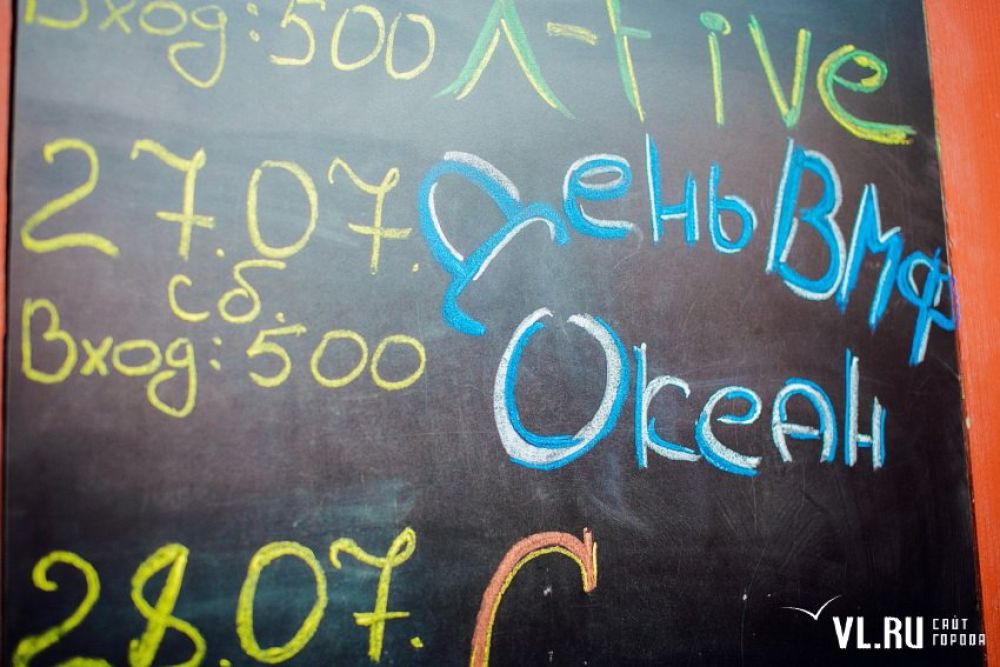 Вход: 500 A-Five
27.07. День ВМФ
сб.
Вход: 500 Океан
28.07.
VL.RU САЙТ ГОРОДА